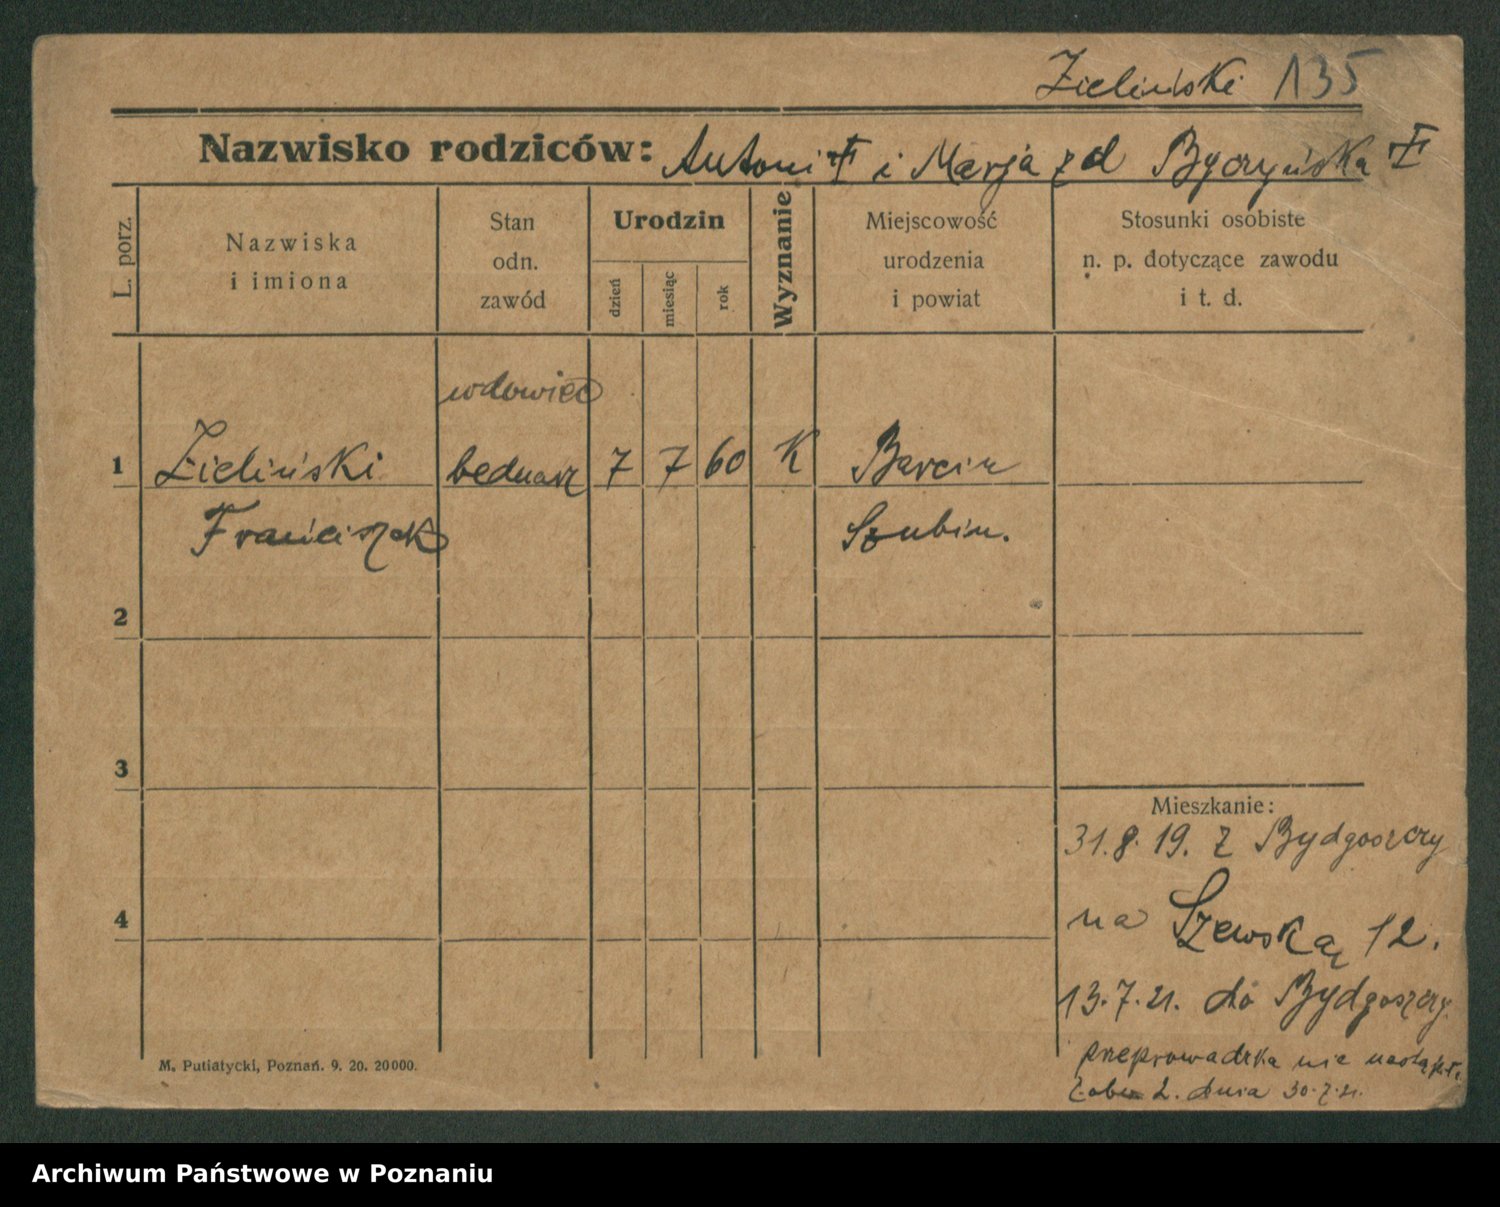 Zieliński 135
Nazwisko rodziców: Antoni ✝ i Marja z d Byczyńska ✝
L. porz.
Nazwiska
i imiona
Stan
odn.
zawód
Urodzin
dzień
miesiąc
rok
Wyznanie
Miejscowość
urodzenia
i powiat
Stosunki osobiste
n. p. dotyczące zawodu
i t. d.
wdowiec
1 Zieliński bednarz 7 7 60 K Barcin
Franciszek Szubin.
2
3
4
Mieszkanie:
31.8.19. z Bydgoszczy
na Szewską 12.
13.7.21. do Bydgoszczy.
przeprowadzka nie nastąpiła
2. dnia 30.7.21.
M. Putiatycki, Poznań. 9. 20. 20000.
Archiwum Państwowe w Poznaniu